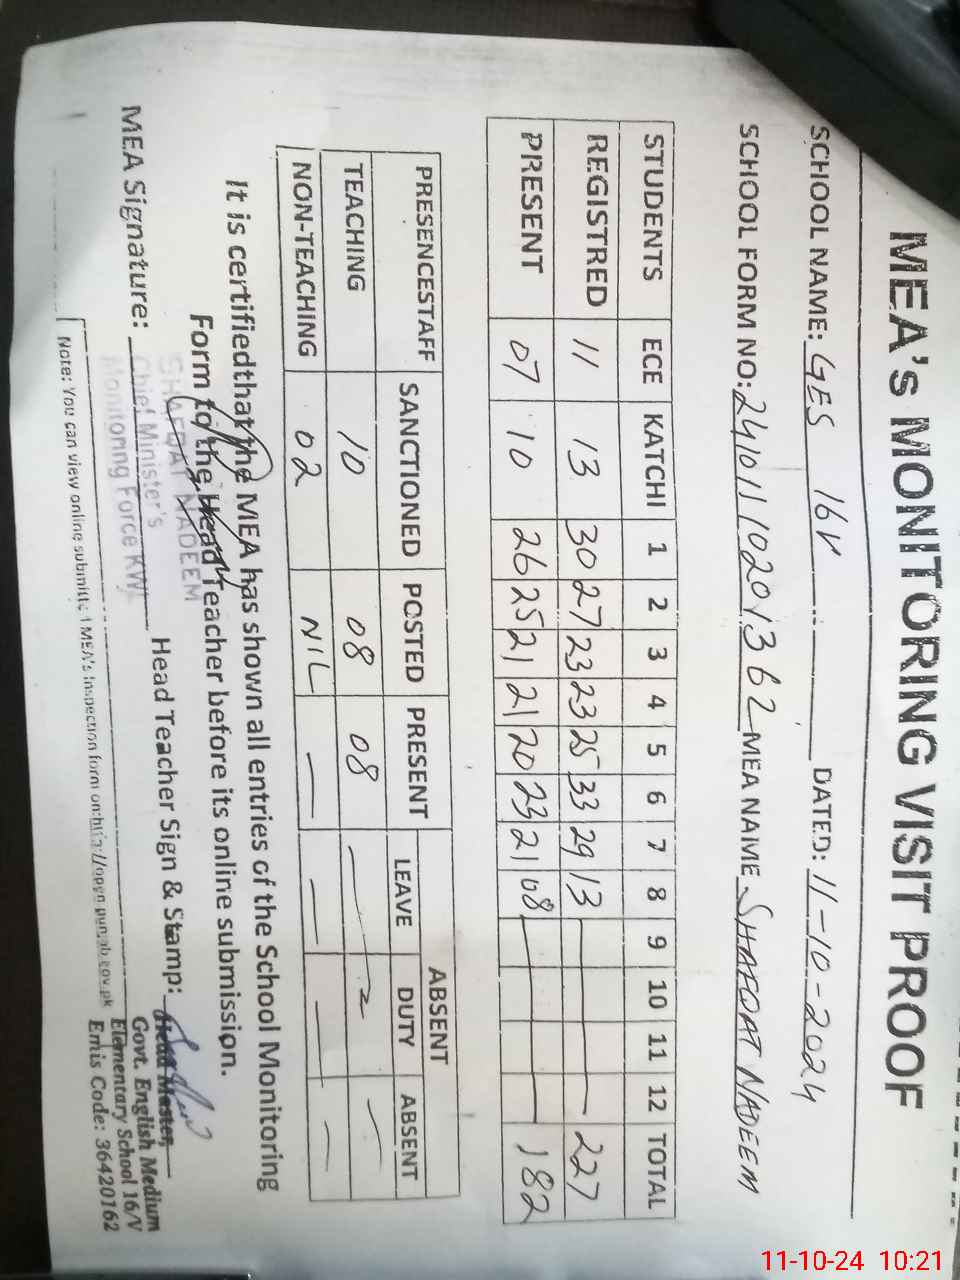 MEA's MONITORING VISIT PROOF
SCHOOL NAME: GES 16V DATED: 11-10-2024
SCHOOL FORM NO: 24101110201362 MEA NAME SHAFQAT NADEEM
STUDENTS ECE KATCHI 1 2 3 4 5 6 7 8 9 10 11 12 TOTAL
REGISTRED 11 13 30 27 23 23 25 33 29 13 227
PRESENT 07 10 26 25 21 21 20 23 21 08 182
PRESENCESTAFF SANCTIONED POSTED PRESENT ABSENT
LEAVE DUTY ABSENT
TEACHING 10 08 08 —
NON-TEACHING 02 NIL — — — —
It is certifiedthat the MEA has shown all entries of the School Monitoring
Form to the Head Teacher before its online submission.
SHAFQAT NADEEM
Chief Minister's
Monitoring Force KWL
MEA Signature: Head Teacher Sign & Stamp:
Head Master,
Govt. English Medium
Elementary School 16/V
Emis Code: 36420162
Note: You can view online submitted MEA's Inspection form on:http://open.punjab.gov.pk
11-10-24 10:21